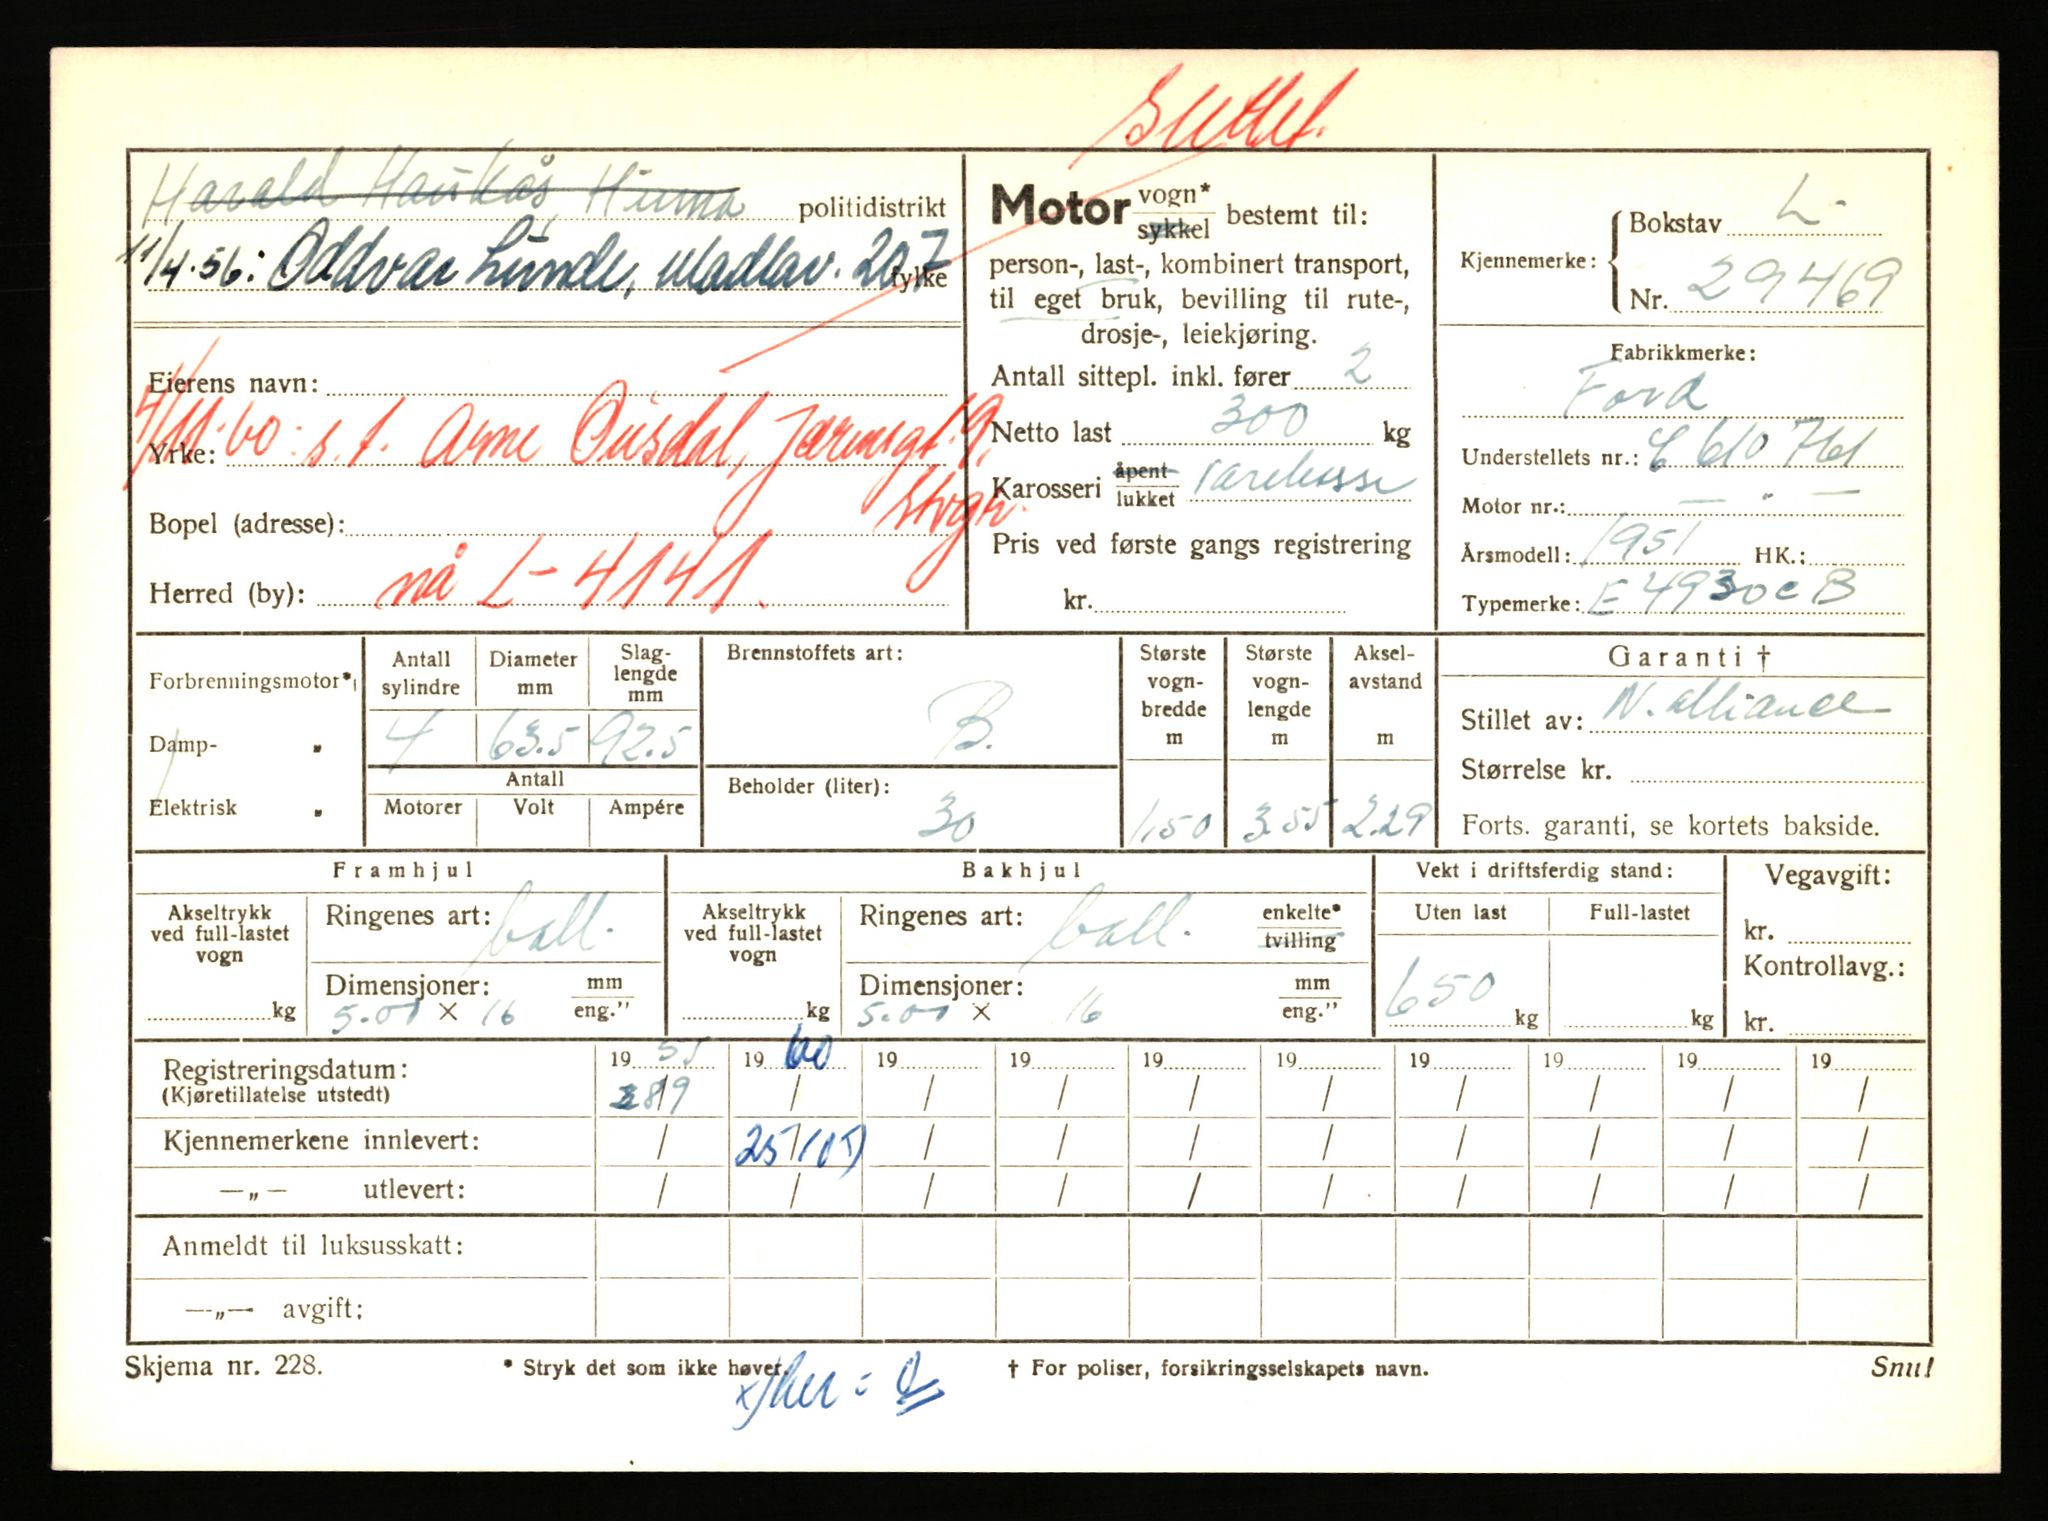 Slettet.
Harald Haukås, Hinna politidistrikt
11/4.56: Oddvar Lunde, Madlav. 207 fylke
Eierens navn:
4/11-60: s.t. Arne Ousdal, Jærensgt. 9,
Yrke:
Stvgr.
Bopel (adresse):
Herred (by): nå L-4141.
Motor vogn* sykkel bestemt til:
person-, last-, kombinert transport,
til eget bruk, bevilling til rute-,
drosje-, leiekjøring.
Antall sittepl. inkl. fører 2
Netto last 300 kg
Karosseri åpent lukket varekasse
Pris ved første gangs registrering
kr.
Kjennemerke: Bokstav L-
Nr. 29469
Fabrikkmerke:
Ford
Understellets nr.: C 610761
Motor nr.: — " —
Årsmodell: 1951 HK.:
Typemerke: E 4930 C B
Forbrenningsmotor*
Damp- "
Elektrisk "
Antall sylindre Diameter mm Slaglengde mm
4 63.5 92.5
Antall
Motorer Volt Ampére
Brennstoffets art:
B.
Beholder (liter):
30
Største vognbredde m Største vognlengde m Akselavstand m
1.50 3.55 2.29
Garanti †
Stillet av: N. Alliance
Størrelse kr.
Forts. garanti, se kortets bakside.
Framhjul
Akseltrykk ved full-lastet vogn
kg
Ringenes art: ball.
Dimensjoner: mm eng."
5.00 × 16
Bakhjul
Akseltrykk ved full-lastet vogn
kg
Ringenes art: ball. enkelte* tvilling
Dimensjoner: mm eng."
5.00 × 16
Vekt i driftsferdig stand:
Uten last Full-lastet
650 kg kg
Vegavgift:
kr.
Kontrollavg.:
kr.
Registreringsdatum: 19 55 19 60 19 19 19 19 19 19 19 19
(Kjøretillatelse utstedt) 28/9 / / / / / / / / /
Kjennemerkene innlevert: / 25/10 / / / / / / / /
—„— utlevert: / / / / / / / / / /
Anmeldt til luksusskatt:
—„— avgift:
Skjema nr. 228. * Stryk det som ikke høver. † For poliser, forsikringsselskapets navn. Snu!